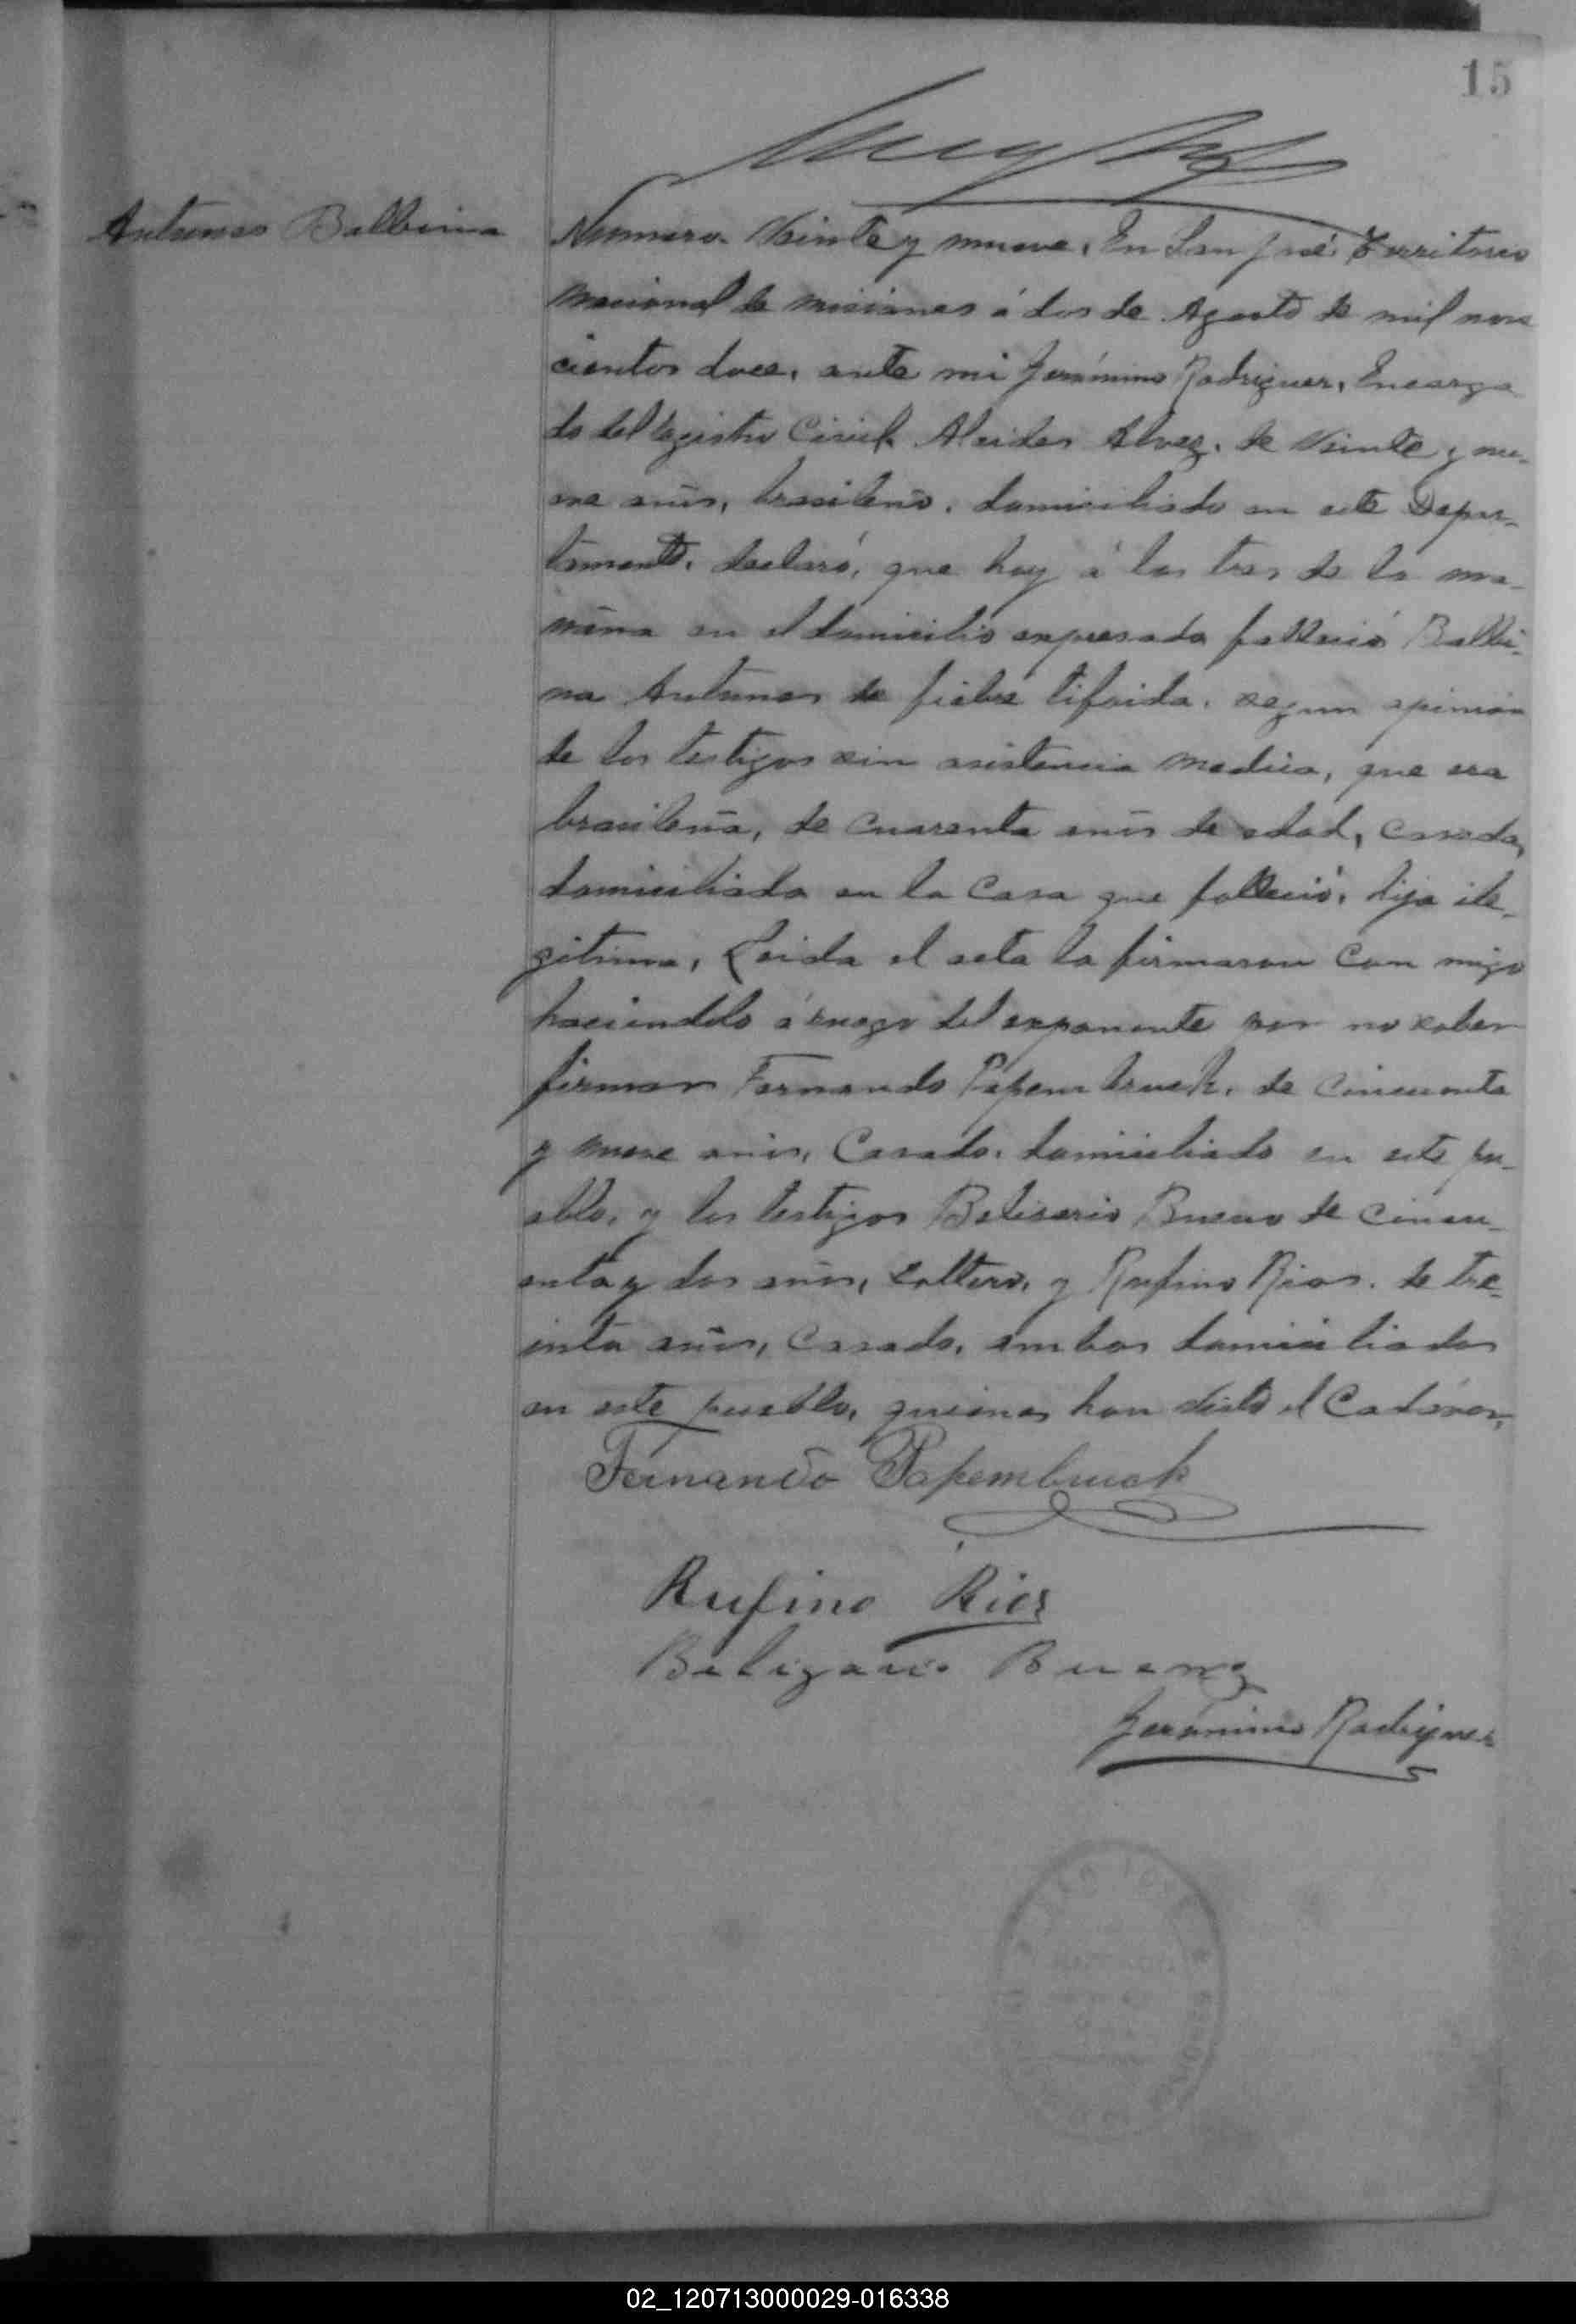 15
Antunes Balbina
Numero Veinte y nueve, En San José Territorio
nacional de misiones á dos de Agosto de mil nove
cientos doce, ante mi Jerónimo Rodriguez, Encarga
do del Registro Civil, Alcides Alvez, de Veinte y nu-
eve años, brasileño, domiciliado en este Depar-
tamento, declaró, que hoy á las tres de la ma-
ñana en el domicilio expresado falleció Balbi-
na Antunes de fiebre tifoida, segun opinion
de los testigos sin asistencia medica, que era
brasileña, de cuarenta años de edad, casada,
domiciliada en la casa que falleció, hija ile-
gitima, Leida el acta la firmaron con migo
haciendolo á ruego del exponente por no saber
firmar Fernando Papembruck, de cincuenta
y nueve años, Casado, domiciliado en este pu-
eblo, y los testigos Belisario Bueno de cincu-
enta y dos años, soltero, y Rufino Rios, de tre-
inta años, Casado, ambos domiciliados
en este pueblo, quienes han visto el Cadáver,
Fernando Papembruck
Rufino Rios
Belizario Bueno
Jerónimo Rodriguez
02_120713000029-016338